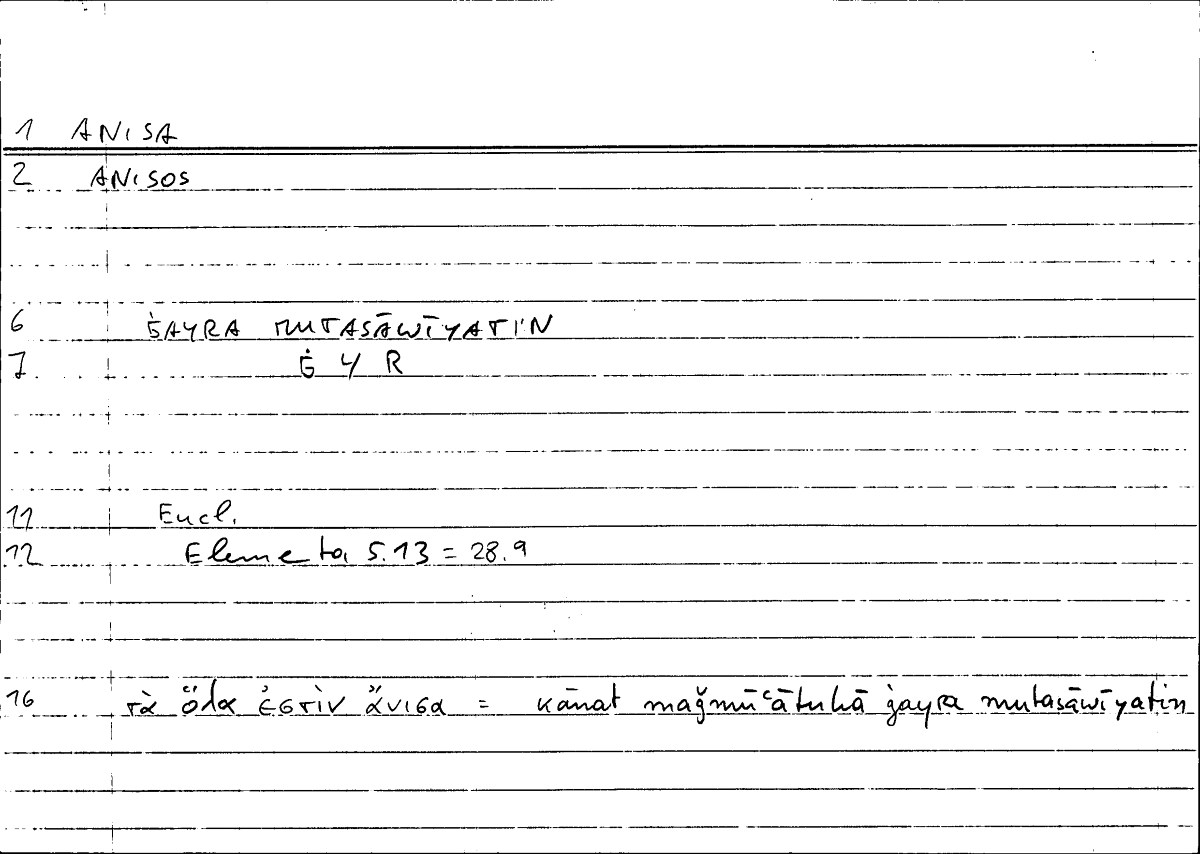 1 ANISA
2 ANISOS
6 ĠAYRA MUTASĀWĪYATIN
7 Ġ Y R
11 Eucl.
12 Elementa 5.13 = 28.9
16 τὰ ὅλα ἐστὶν ἄνισα = kānat maǧmūʿātuhā ġayra mutasāwīyatin